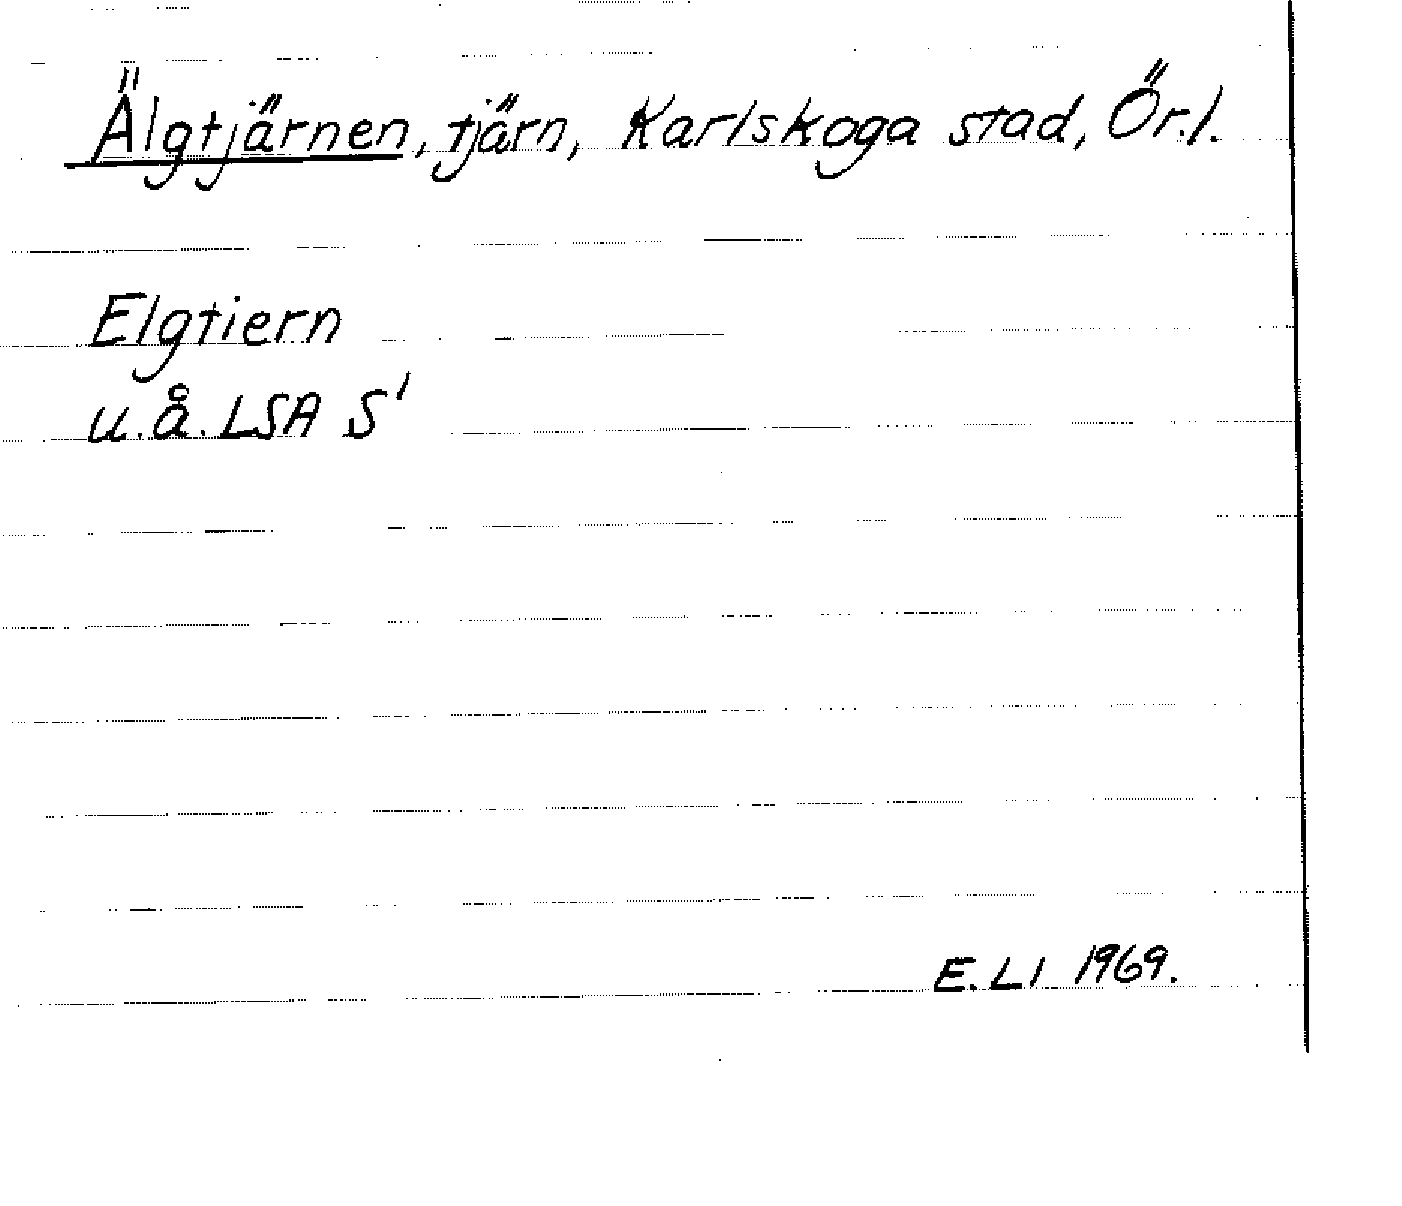 Älgtjärnen, tjärn, Karlskoga stad, Ör.l.
Elgtiern
u.å. LSA S'
E.LI 1969.